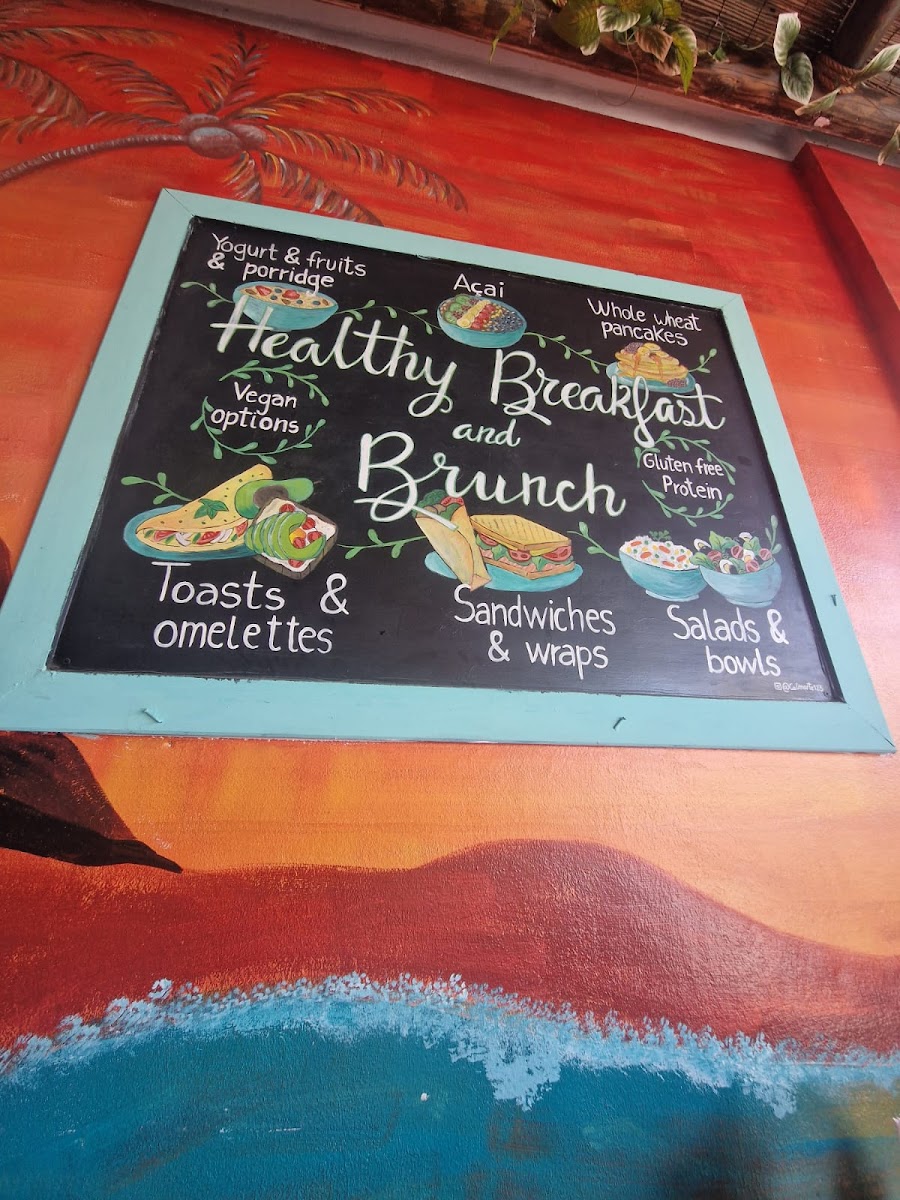 Yogurt & fruits
& porridge
Açai
Whole wheat
pancakes
Healthy Breakfast
and
Brunch
Vegan
options
Gluten free
Protein
Toasts &
omelettes
Sandwiches
& wraps
Salads &
bowls